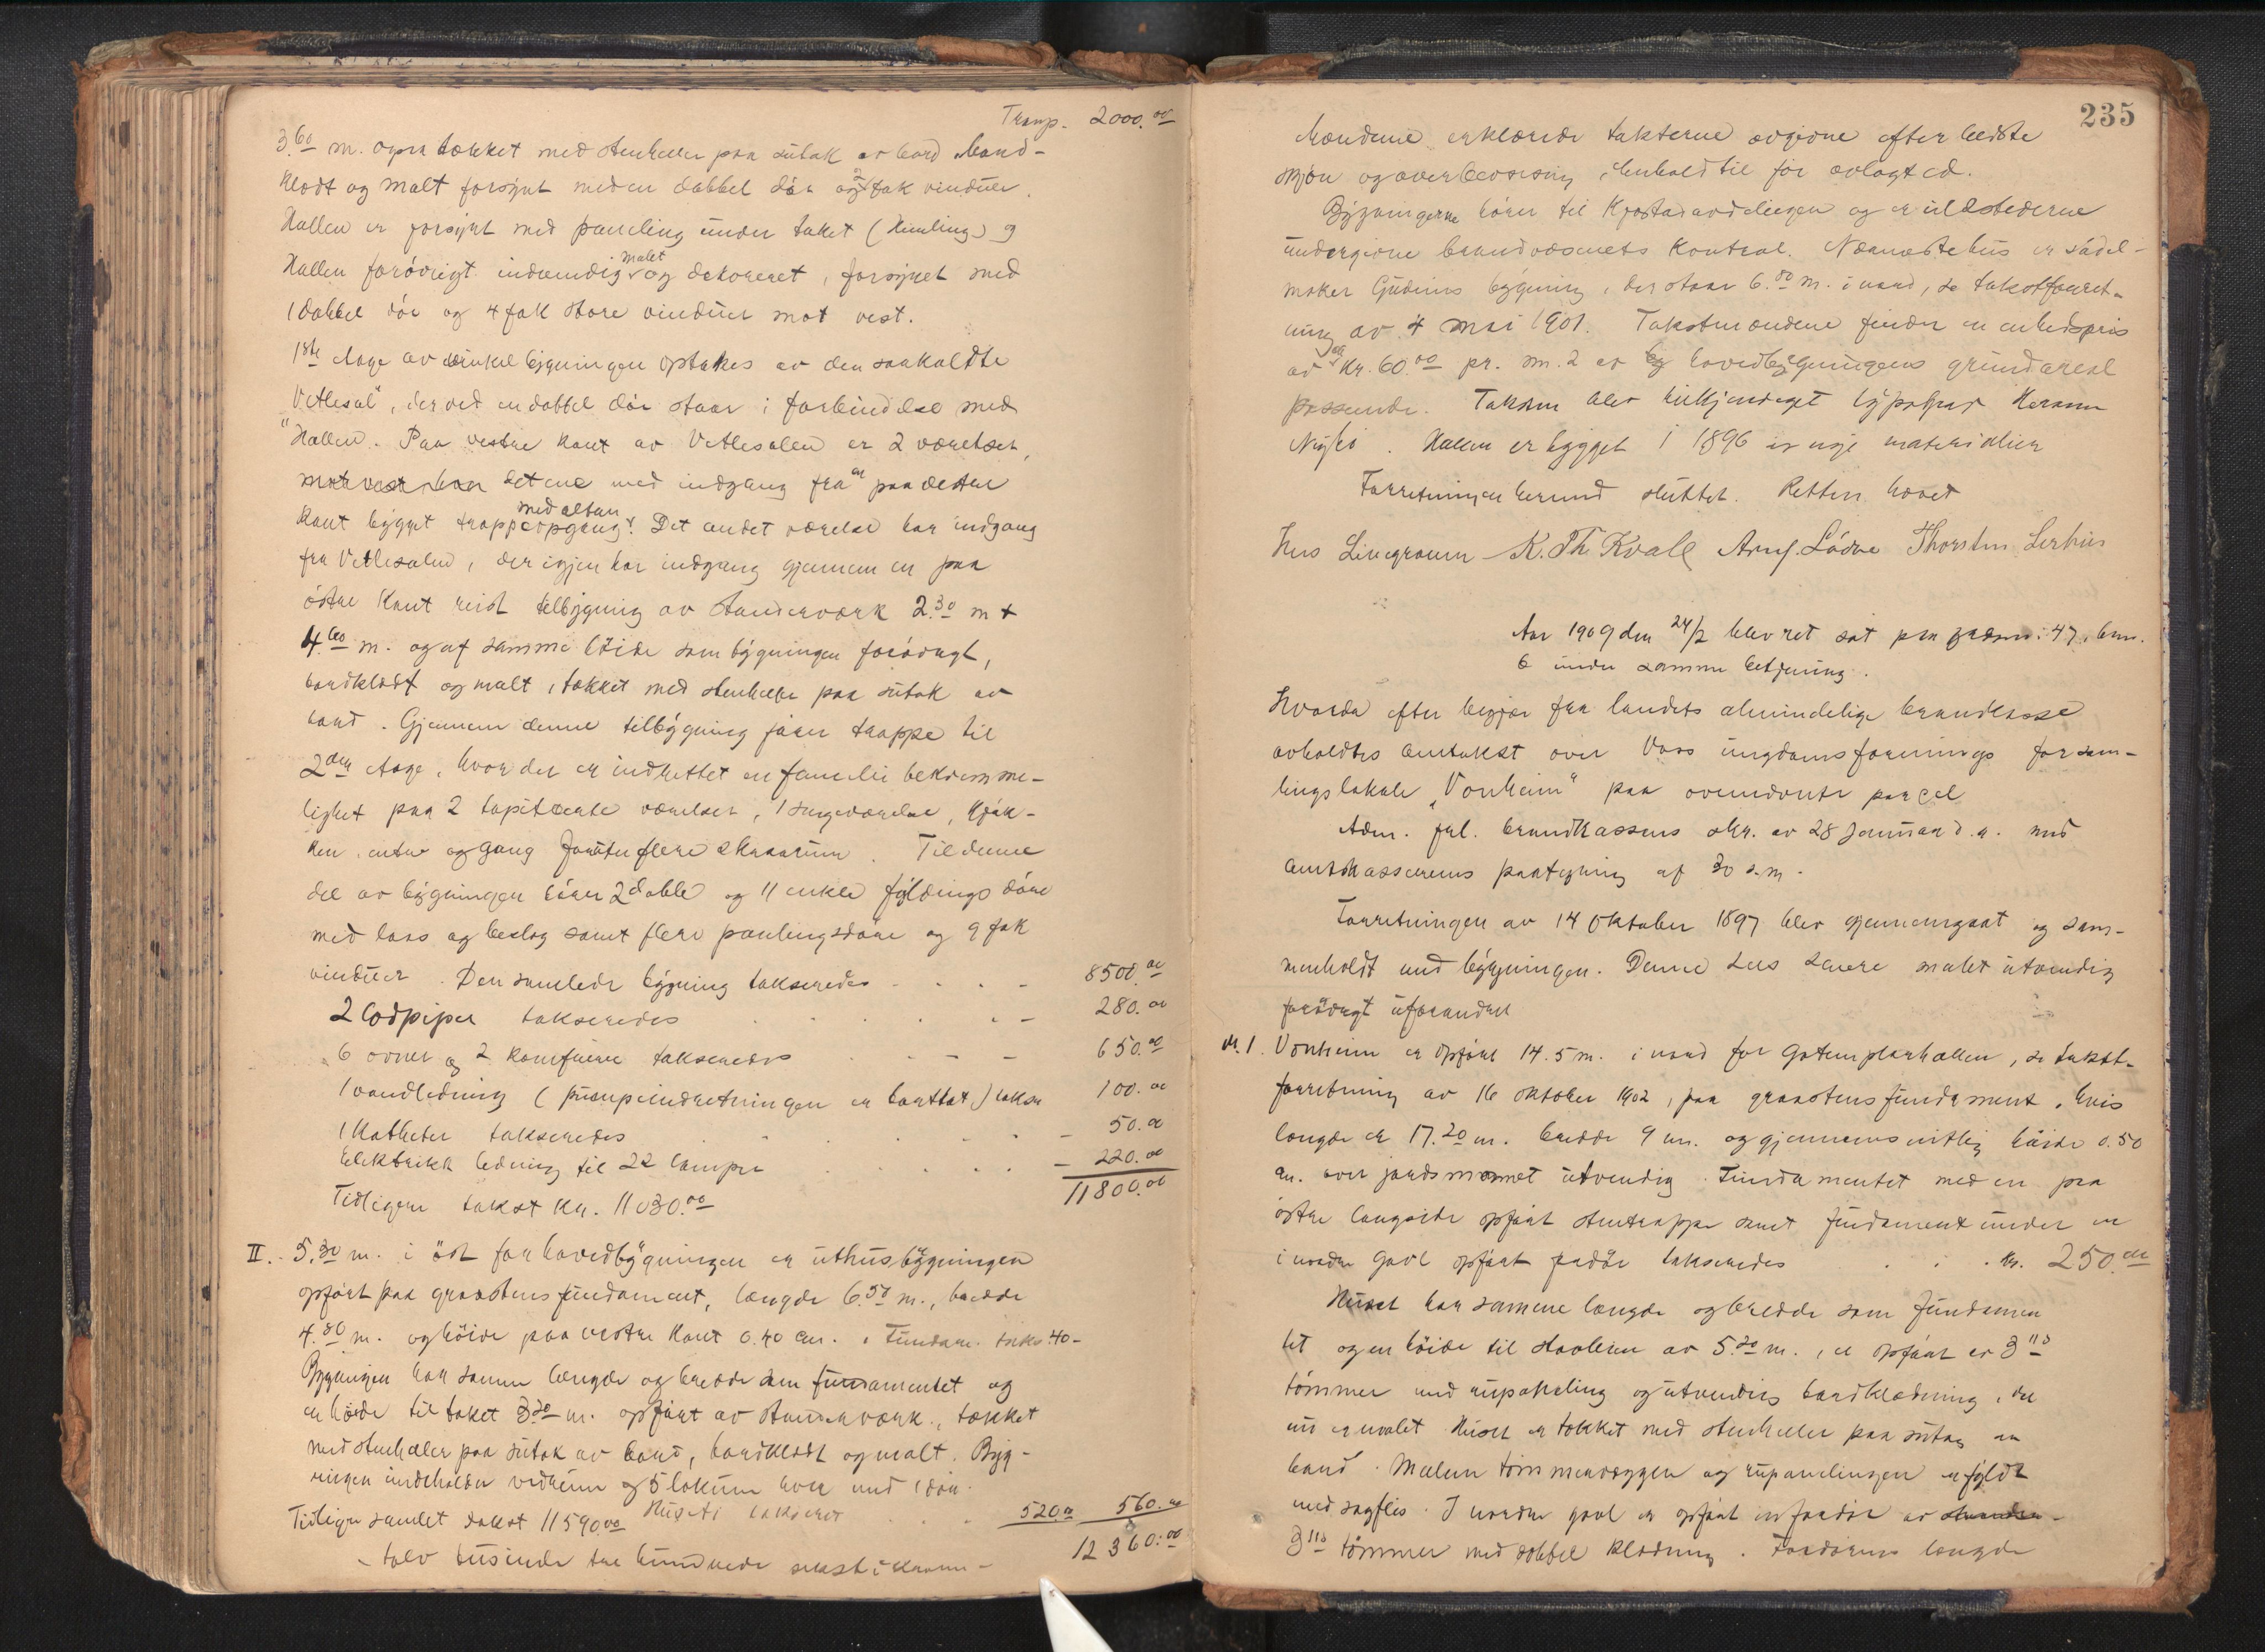 Transp. 2000.00
3.60 m. ogsaa tækket med stenheller paa sutak av bord bord-
klædt og malt forsynt med en dobbel dör og 2 fak vinduer.
Hallen er forsynt med paneling under taket (Himling) og
Hallen forövrigt indvendig malet og dekoreret, forsynet med
1 dobbel dör og 4 fak store vinduer mot vest.
1ste etage av vinkelbygningen optakes av den saakaldte
Vetlesal", der ved en dobbel dör staar i forbindelse med
"Hallen. Paa vestre kant av Vetlesalen er 2 værelser,
det ene med indgang fra en paa vestre
kant bygget trappeopgang med altan. Det andet værelse har indgang
fra Vetlesalen, der igjen har indgang gjennem en paa
östre kant reist tilbygning av stenderværk 2.30 m +
4.60 m. og af samme höide som bygningen forövrigt,
bordklædt og malt, tækket med stenheller paa sutak av
bord. Gjennem denne tilbygning förer trappe til
2den etage, hvor der er indrettet en familie bekvemme-
lighet paa 2 tapiterete værelser, 1 sengeværelse, kjök-
ken, entre og gang foruten flere skaarum. Til denne
del av bygningen hörer 2 doble og 11 enkle fyldingsdöre
med laas og beslag samt flere panelingsdöre og 9 fak
vinduer. Den samlede bygning takseredes - 8500.00
2 Lodpiper takseredes - 280.00
6 ovner og 2 komfurer takseredes - 650.00
1 vandledning (pumpeindretningen er borttat) takser 100.00
1 Katheter takseredes - 50.00
Elektrisk ledning til 22 lamper - 220.00
11800.00
Tidligere takst kr. 11030.00
II. 5.30 m. i öst for hovedbygningen er uthusbygningen
opfört paa graastensfundament, længde 6.50 m., bredde
4.80 m. og höide paa vestre kant 0.40 cm. Fundam. taks 40-
Bygningen har samme længde og bredde som fundamentet og
en höide til taket 3.20 m. opfört av stenderværk, tækket
med stenheller paa sutak av bord, bordklædt og malt. Byg-
ningen indeholder vedrum og 5 lokum hver med 1 dör.
Huset takseret 520.00 560.00
Tidligere samlet takst 11590.00
12360.00
- tolv tusinde tre hundrede seksti kroner -
235
Mændene erklærede taksterne avgivne efter bedste
skjön og overbevisning i henhold til för avlagt ed.
Bygningerne hörer til Kjøpstadavdelingen og er ildstederne
undergivne brandvæsenets kontrol. Nærmeste hus er sadel-
maker Gjderns bygning, der staar 6.80 m. i nord, se takstforret-
ning av 4 mai 1901. Takstmændene finder en enhedspris
av kr. 60.00 pr. m.2 av hovedbygningens grundareal
passende. Taksten blev tilkjendegit typograf Herman
Nyhei. Hallen er bygget i 1896 av nye materialier
Forretningen herund sluttet. Retten hævet
Lars Linegroven K. Th. Kvale Arnf. Lödve Thorsten Lirhus
Aar 1909 den 24/2 blev ret sat paa gaardsn. 47, brn.
6 under samme betjening.
Hvorda efter begjær fra landets almindelige brandkasse
avholdtes omtakst over Voss ungdomsforenings forsam-
lingslokale „Vonheim" paa ovennævnte parcel
Adm. frl. brandkassens skr. av 28 januar d.a. med
amtskasserens paategning af 30 s.m.
Forretningen av 14 oktober 1897 blev gjennemgaat og sam-
menholdt med bygningen. Denne sees senere malet utvendig
forövrigt uforandret
Nr. 1. Vonheim er opfört 14.5 m. i nord for Gotemplarhallen, se takst-
forretning av 16 oktober 1902, paa graastensfundament, hvis
længde er 17.20 m. bredde 9 m. og gjennemsnitlig höide 0.50
m. over jordsmonnet utvendig. Fundamentet med en paa
östre langside opfört stentrappe samt fundament under en
i nordre gavl opfört fordör takseredes - Kr. 250.00
Huset har samme længde og bredde som fundamen
tet og en höide til stavlinen av 5.20 m., er opfört av 3"s
tömmer med rupaneling og utvendig bordklædning, der
nu er malet. Huset er tækket med stenheller paa sutag av
bord. Mellem tömmervæggen og rupanelingen er fyldt
med sagflis. I nordre gavl er opfört en fordör av
3"s tömmer med dobbel klædning. Fordörens længde